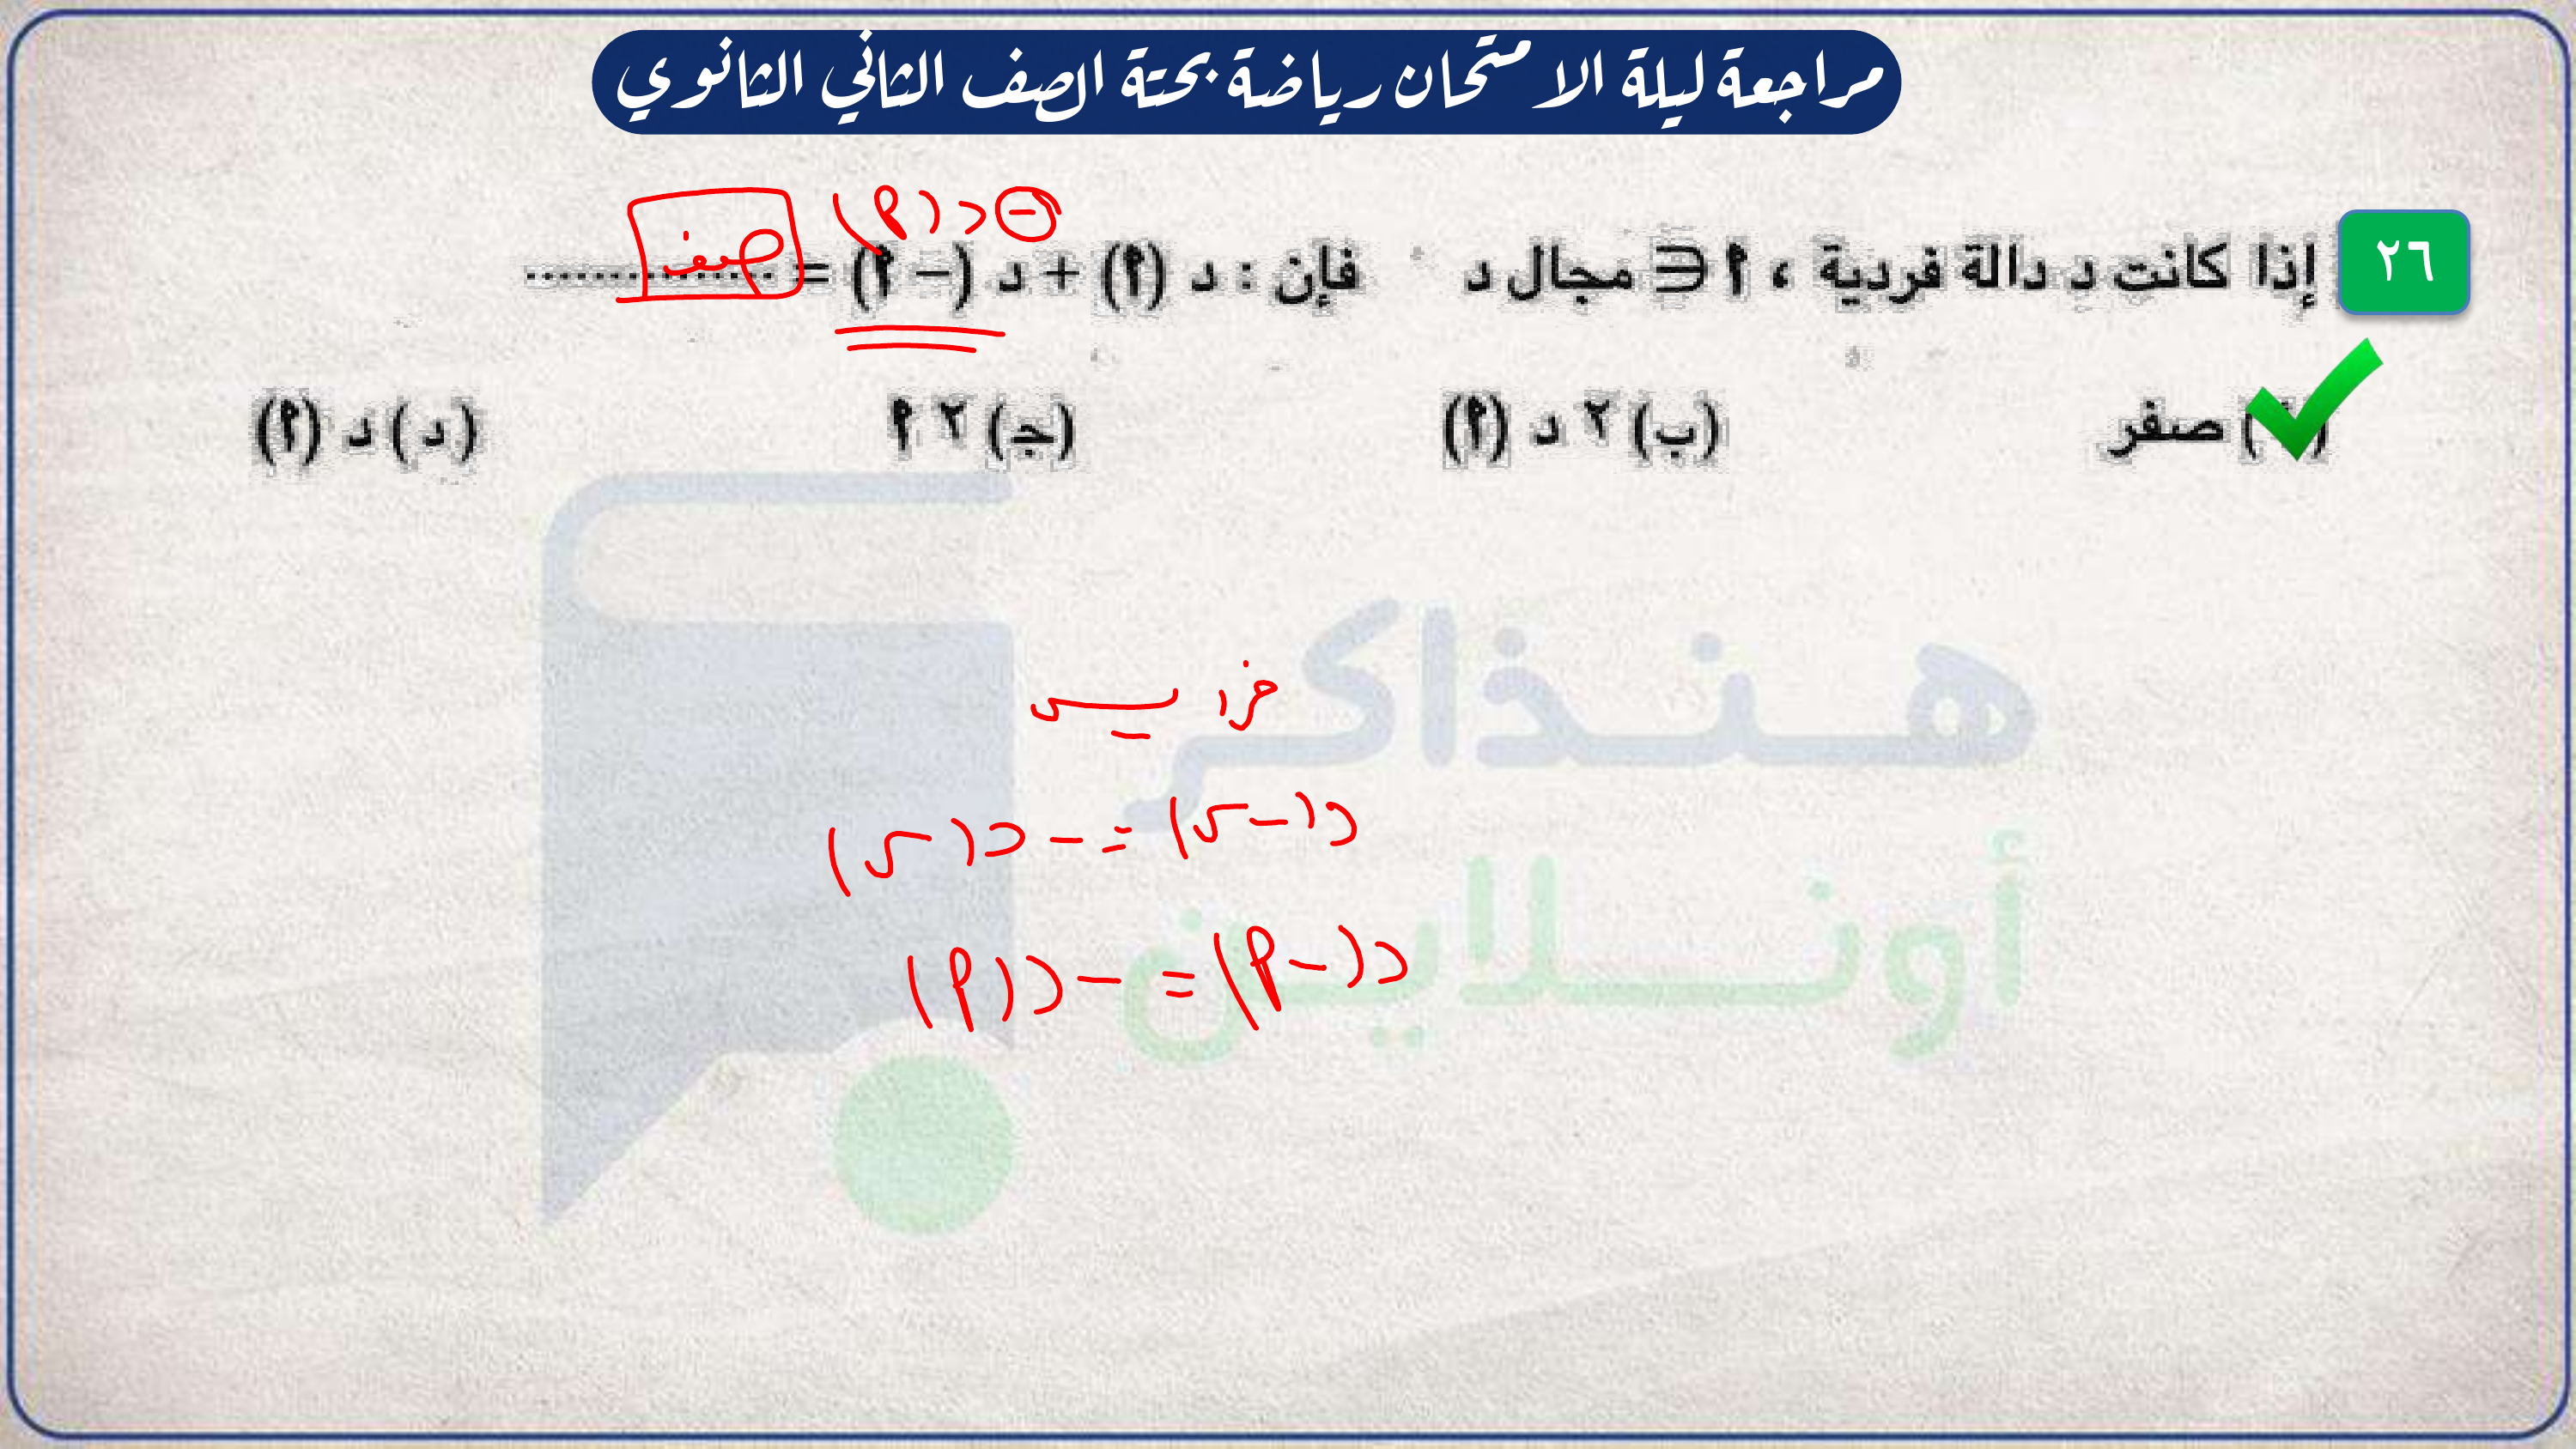 مراجعة ليلة الامتحان رياضة بحتة الصف الثاني الثانوي
- د (أ)
٢٦ إذا كانت د دالة فردية ، أ ∈ مجال د فإن : د (أ) + د (– أ) = .................. صفر
( أ ) صفر (ب) ٢ د (أ) (جـ) ٢ أ (د) د (أ)
هنذاكر
د(-س) = - د(س)
أونلاين
د(-أ) = - د(أ)